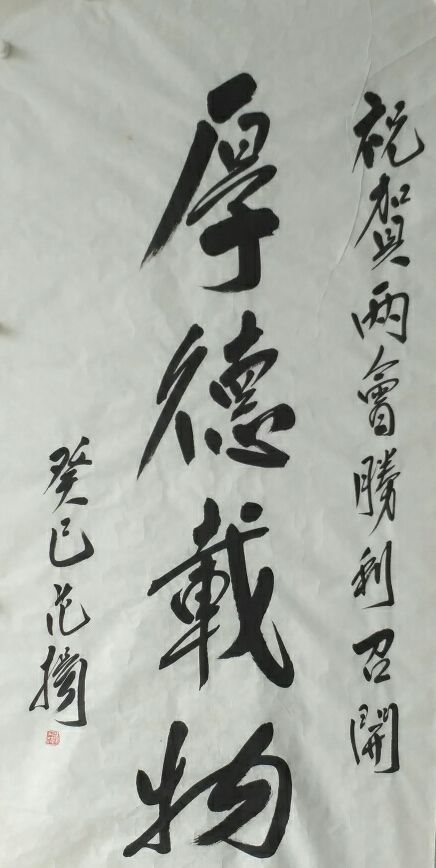 祝贺两會勝利召開
厚德載物
癸巳范